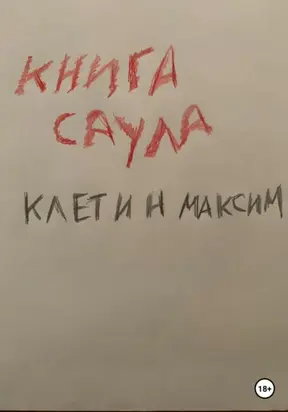 КНИГА
САУЛА
КЛЕТИН МАКСИМ
18+